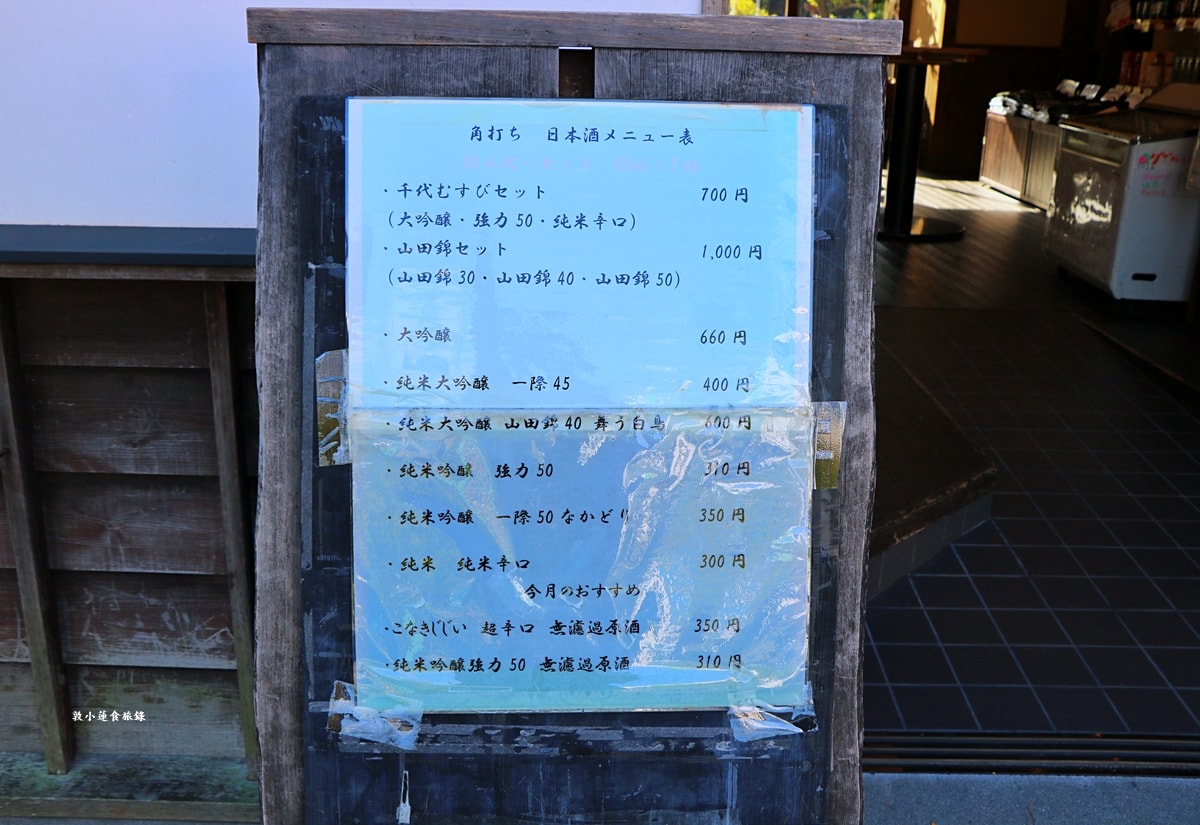 角打ち 日本酒メニュー表
・千代むすびセット 700円
(大吟醸・強力50・純米辛口)
・山田錦セット 1,000円
(山田錦30・山田錦40・山田錦50)
・大吟醸 660円
・純米大吟醸 一際45 400円
・純米大吟醸 山田錦40 舞う白鳥 600円
・純米吟醸 強力50 310円
・純米吟醸 一際50なかどり 350円
・純米 純米辛口 300円
今月のおすすめ
・こなきじじい 超辛口 無濾過原酒 350円
・純米吟醸強力50 無濾過原酒 310円
敦小蓮食旅錄